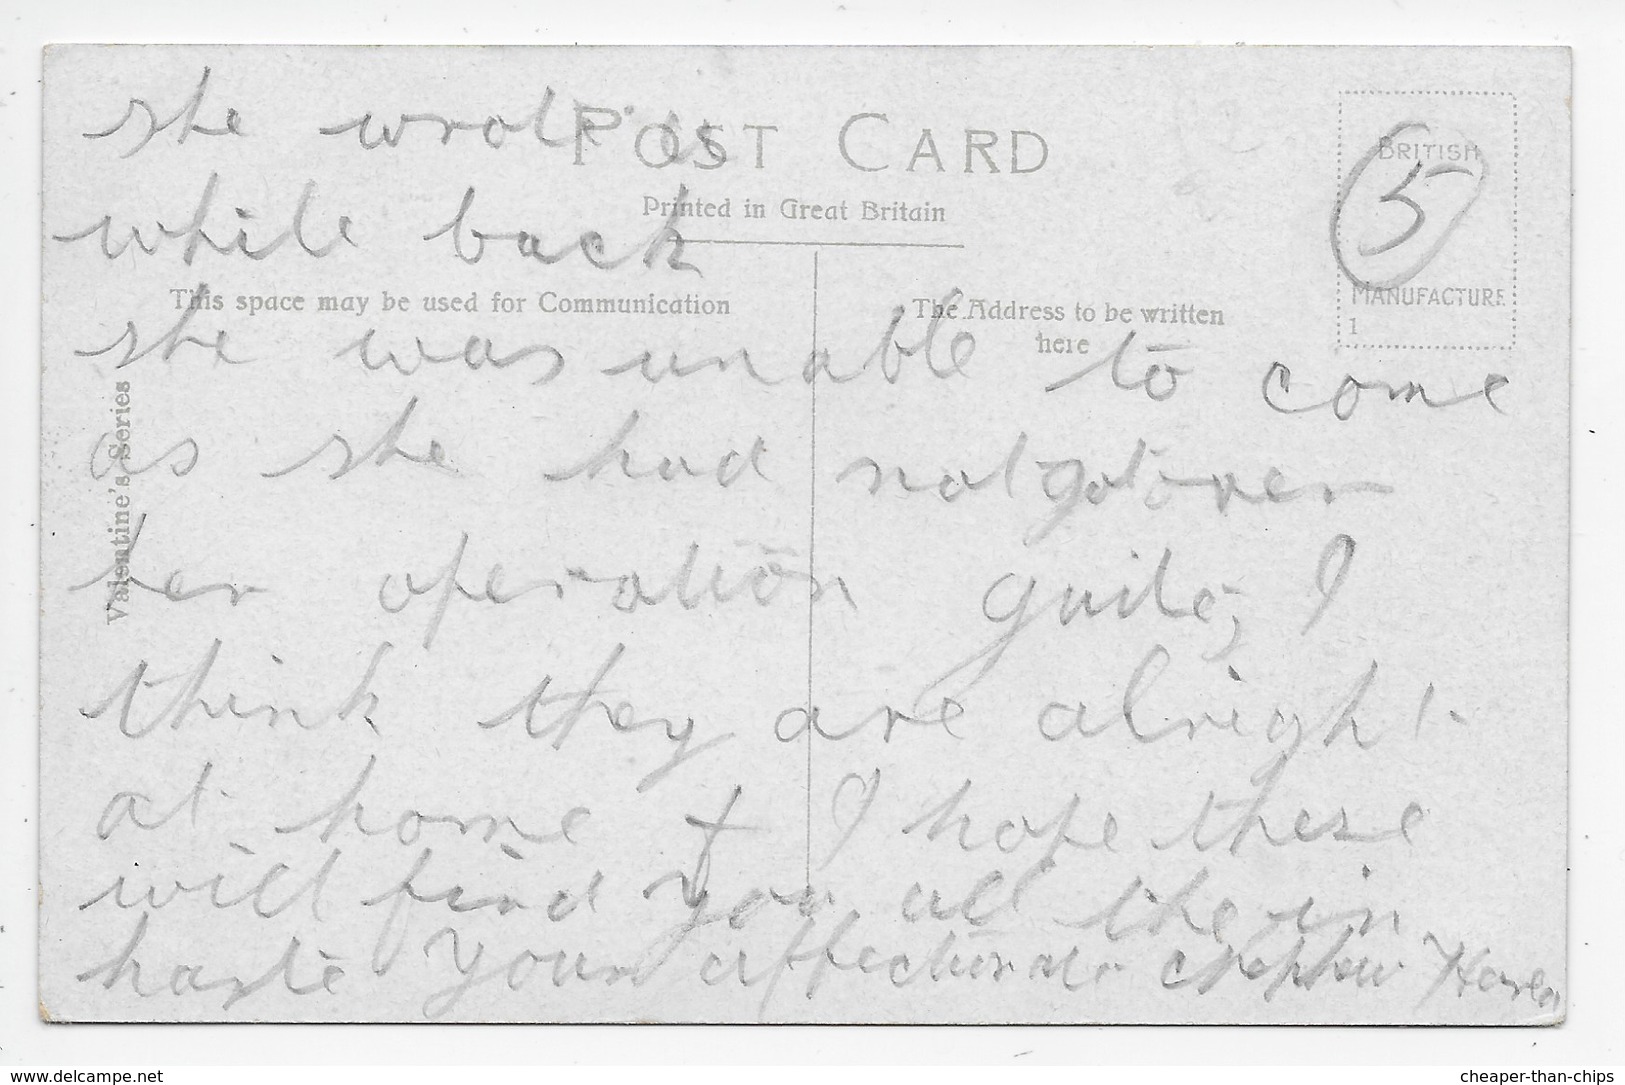 she wrote us
POST CARD
Printed in Great Britain
while back
This space may be used for Communication
The Address to be written
here
BRITISH
5
MANUFACTURE
1
Valentine's Series
she was unable to come
as she had not got over
her operation quite, I
think they are alright
at home & I hope these
will find you all the in
haste Your affectionate Nephew
www.delcampe.net
cheaper-than-chips